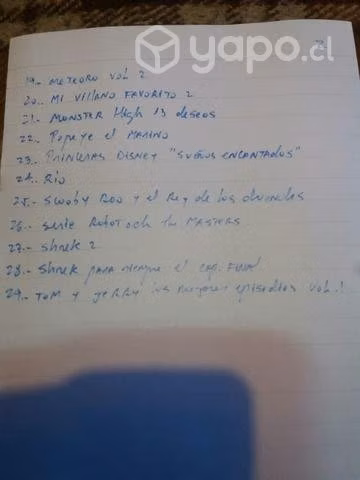 yapo.cl
19.- METEORO VOL 2
20.. MI VILLANO FAVORITO 2
21.- MONSTER High 13 deseos
22.- Popeye el MARINO
23.- PRINCESAS DISNEY "SUEÑOS ENCANTADOS"
24.- Rio
25.- SCOOBY DOO y el Rey de los duendes
26.- serie ROBOTECH MASTERS
27.- Shrek 2
28.- Shrek para siempre el cap. FINAL
29.- TOM y JERRY los mejores episodios VOL.1